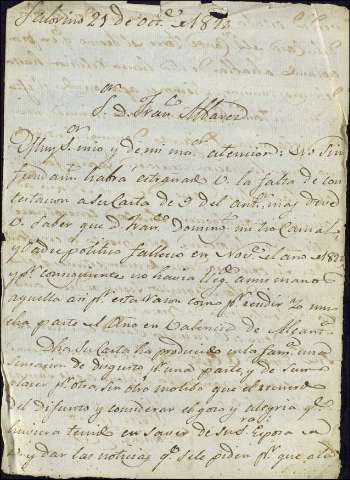 Salorino 21 de Oct.e de 1823
S.or D. Fran.co Albarez
Muy S.or mio y de mi mor. atencion: No sin
fundam.to habrá extrañado V. la falta de con
testacion a su Carta de 9 del ant.or mas debe
V. saber que D. Fran.co Doming.
y Padre politico fallecio en Nov.e el año de 182
y p.r consiguiente no havia lleg.do a mis manos
aquella asi p.r esta razon como p.r rendir yo mu
cha parte del Año en Valencia de Alcant.a
Dha su Carta ha producido en la fam.a una
sensacion de disgusto p.r una parte y de sumo
placer p.r otra sin otro motibo que el recuerdo
del difunto y considerar el gozo y alegria q.e
huviera tenido en saver de su Esposa
V. y dar las noticias q.e se le piden p.r que